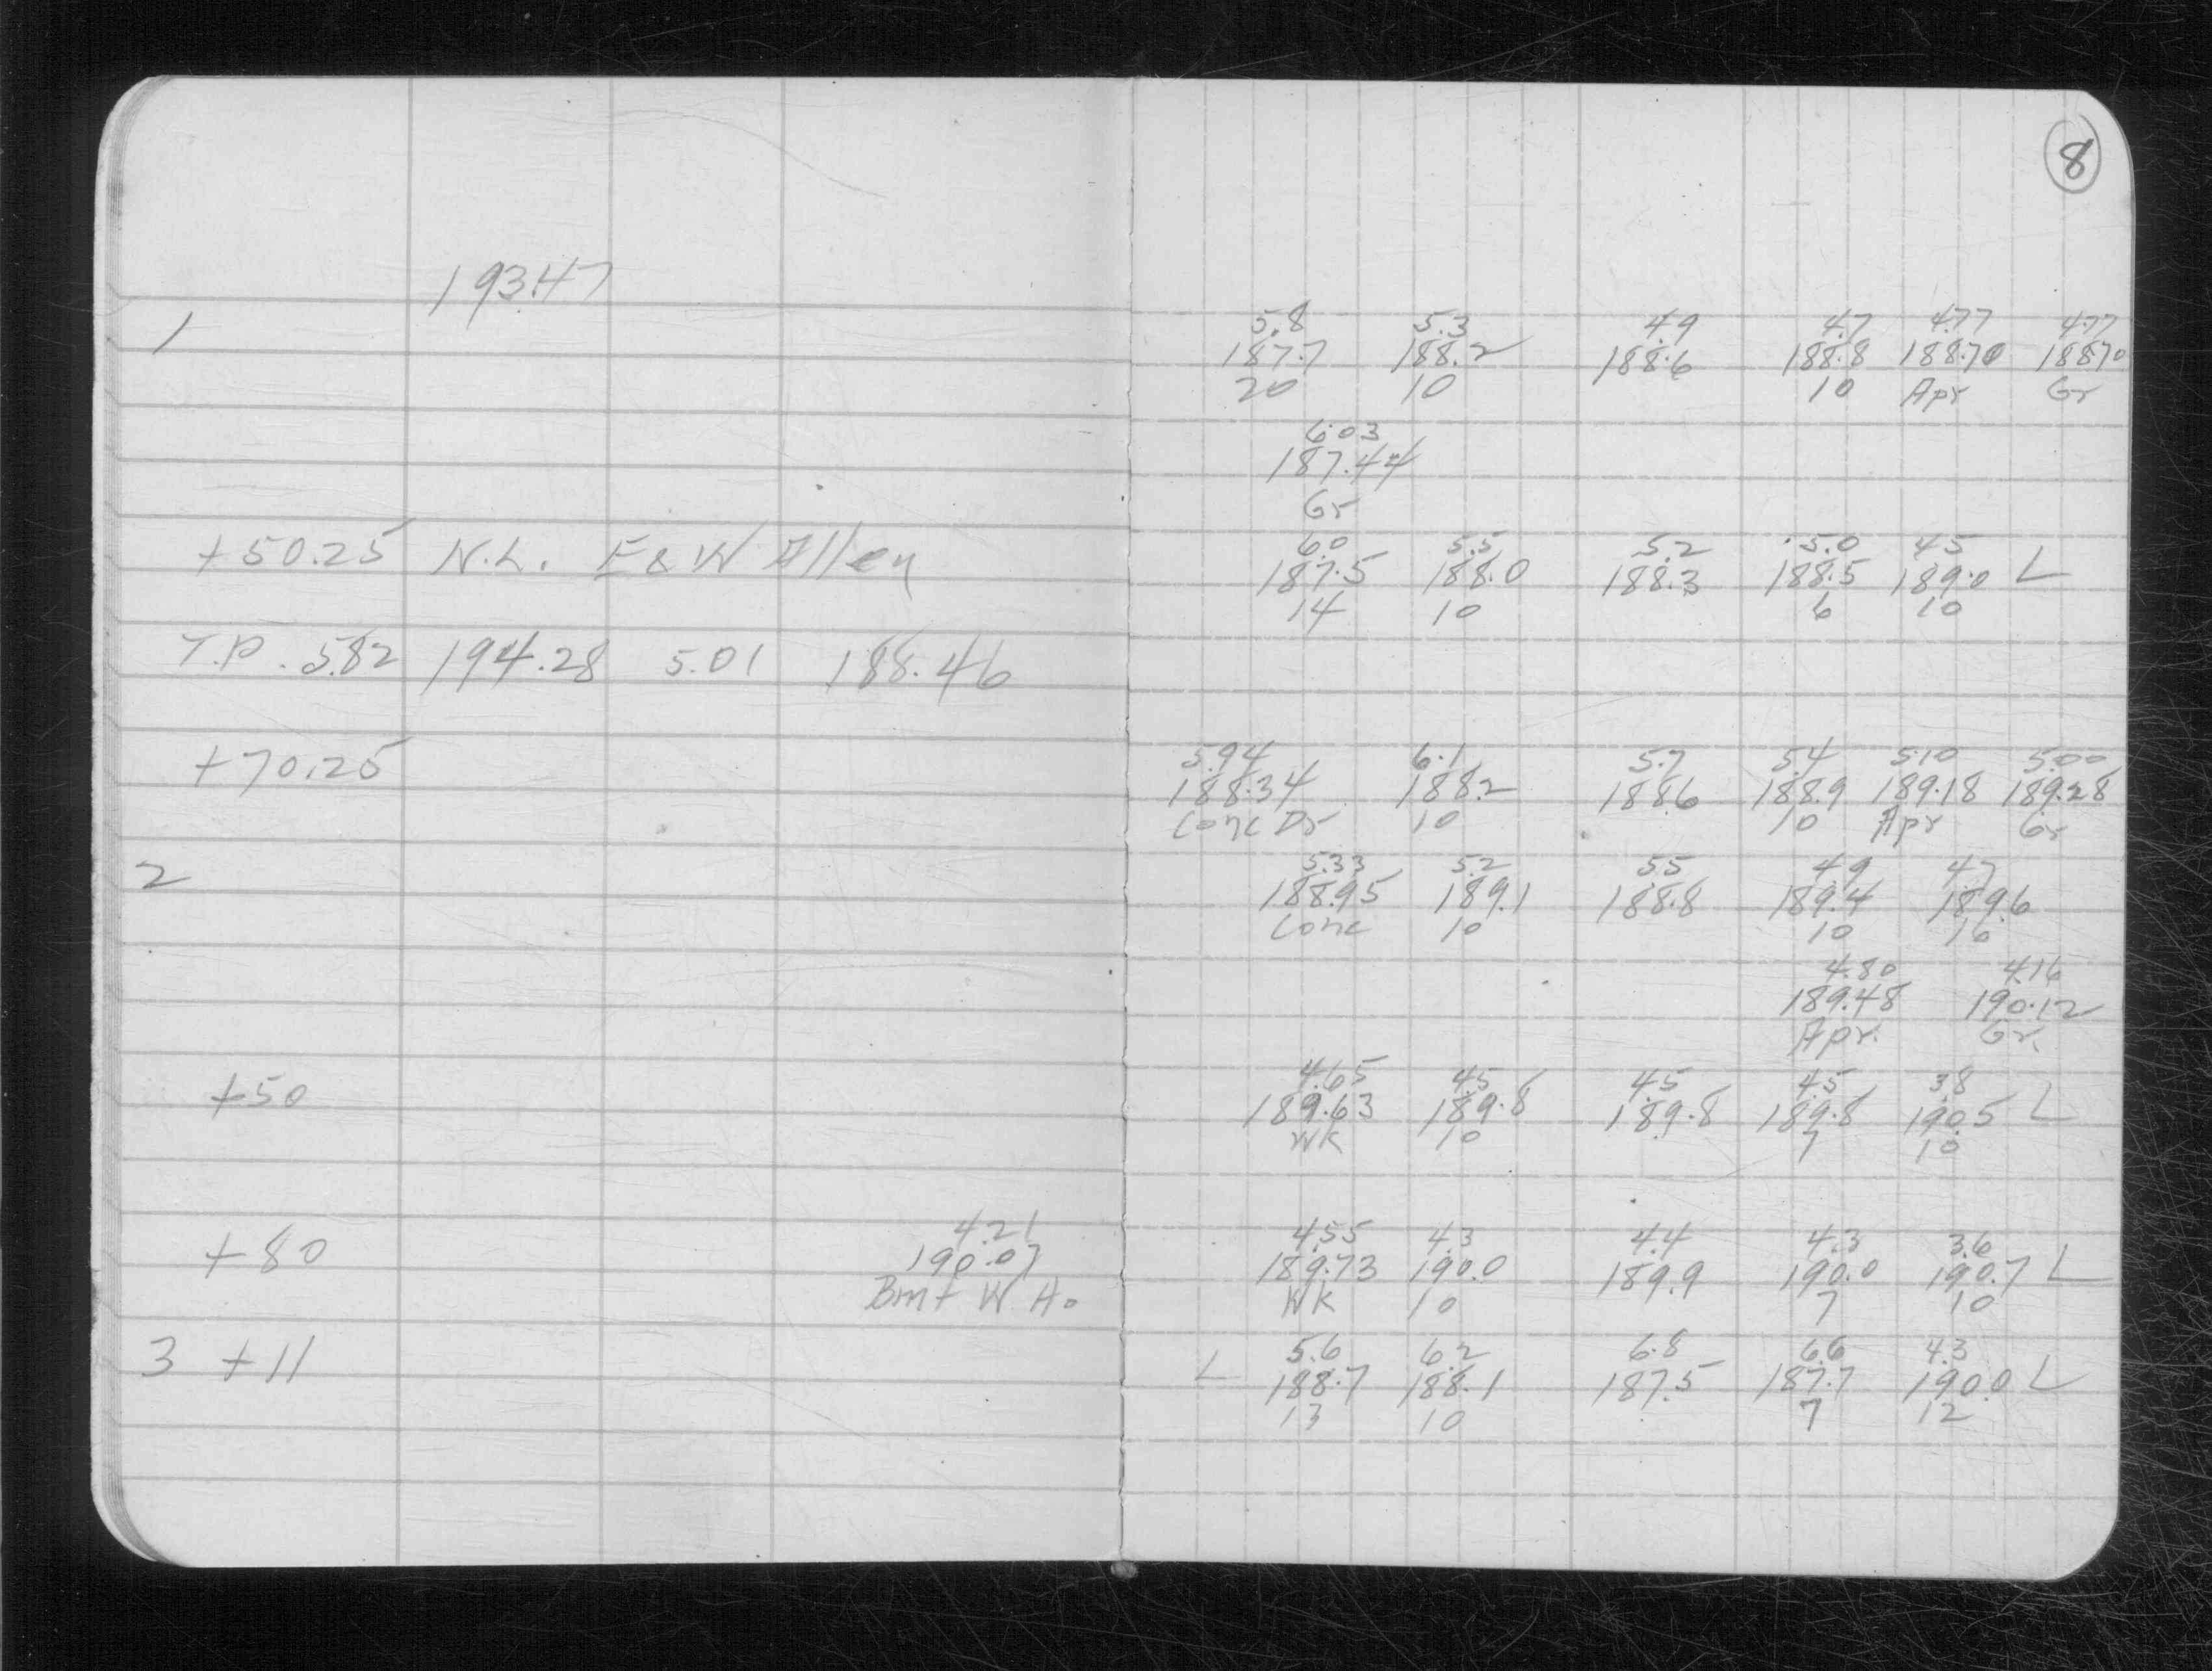 8
193.47
1
5.8 5.3 4.9 4.7 4.77 4.77
187.7 188.2 188.6 188.8 188.70 188.70
20 10 10 Apr Gr
6.03
187.44
Gr
+50.25 N.L. E & W Alley
6.0 5.5 5.2 5.0 4.5
187.5 188.0 188.3 188.5 189.0 L
14 10 6 10
T.P. 5.82 194.28 5.01 188.46
+70.25
5.94 6.1 5.7 5.4 5.10 5.00
188.34 188.2 188.6 188.9 189.18 189.28
Conc Dr 10 10 Apr Gr
2
5.33 5.2 5.5 4.9 4.7
188.95 189.1 188.8 189.4 189.6
Conc 10 10 16
4.80 4.16
189.48 190.12
Apr. Gr.
+50
4.65 4.5 4.5 4.5 3.8
189.63 189.8 189.8 189.8 190.5 L
WK 10 7 10
+80
4.21
190.07
Bmt W. Ho
4.55 4.3 4.4 4.3 3.6
189.73 190.0 189.9 190.0 190.7 L
WK 10 7 10
3 +11
5.6 6.2 6.8 6.6 4.3
L 188.7 188.1 187.5 187.7 190.0 L
13 10 7 12